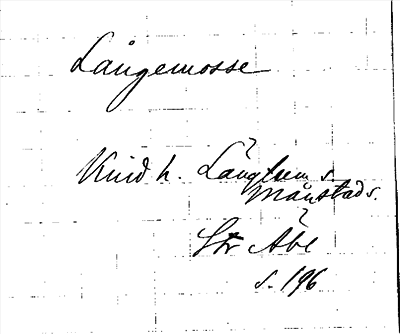 Långemosse
Kind h. Långhem s.
Månstads.
?
Str Åbe
s. 196